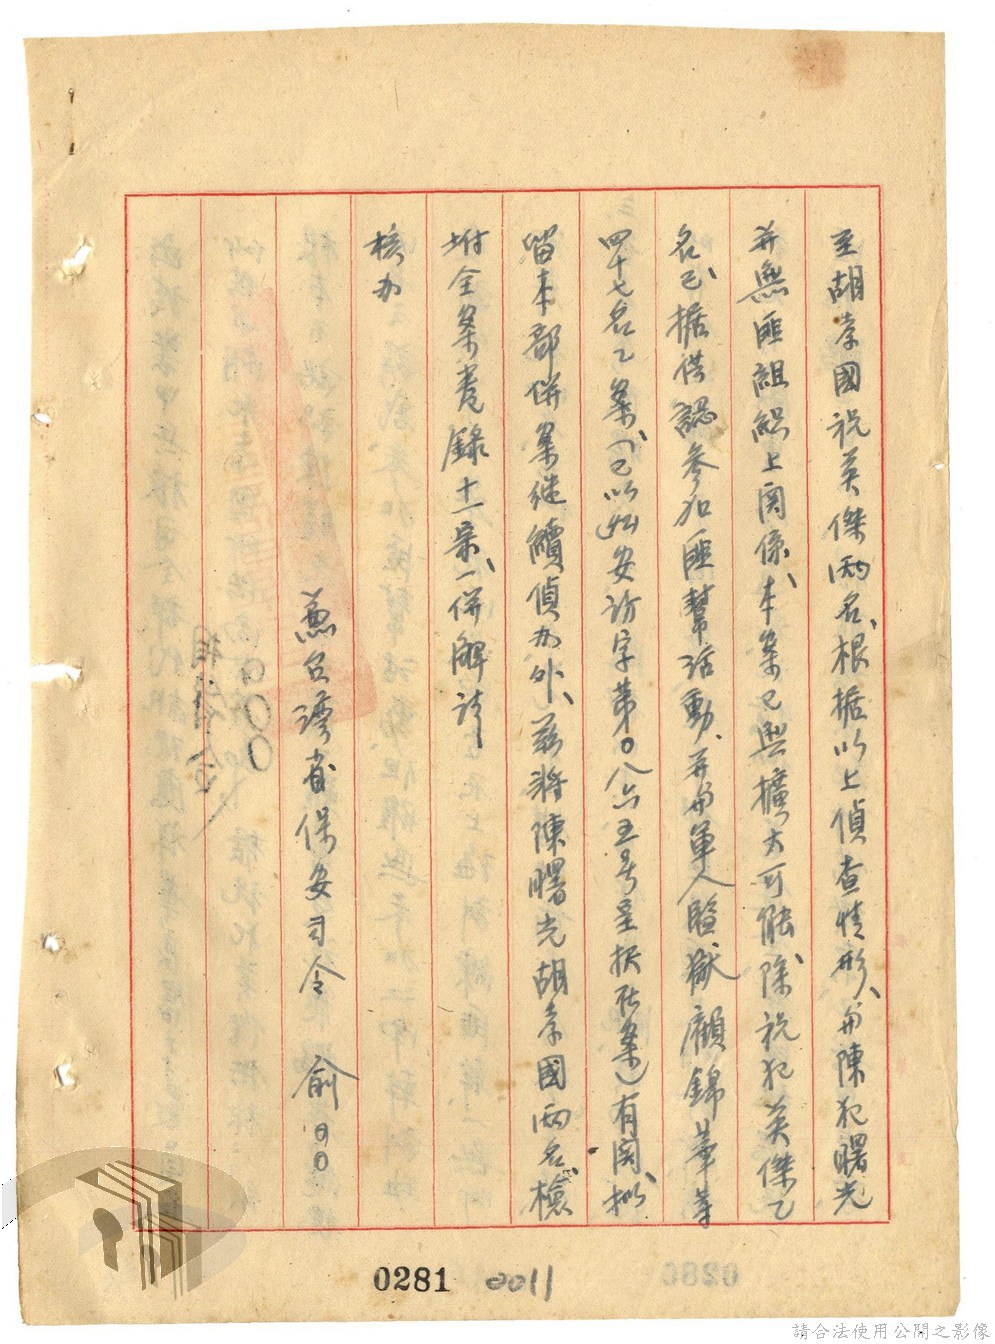 至胡孝國祝英傑兩名、根據以上偵查情形、與陳犯曙光
并無匪組織上関係、本案已無擴大可能、除祝犯英傑乙
名、已據供認參加匪幫活動、并與軍人監獄顧錦華等
四十七名乙案(已以安訪字第0八六五号呈报在案)有関、拟
留本部併案继續偵办外、茲將陳曙光胡孝國兩名、檢
坿全案卷錄十一宗、一併解請
核办
兼台灣省保安司令 俞〇〇
0281
0011
0280
請合法使用公開之影像